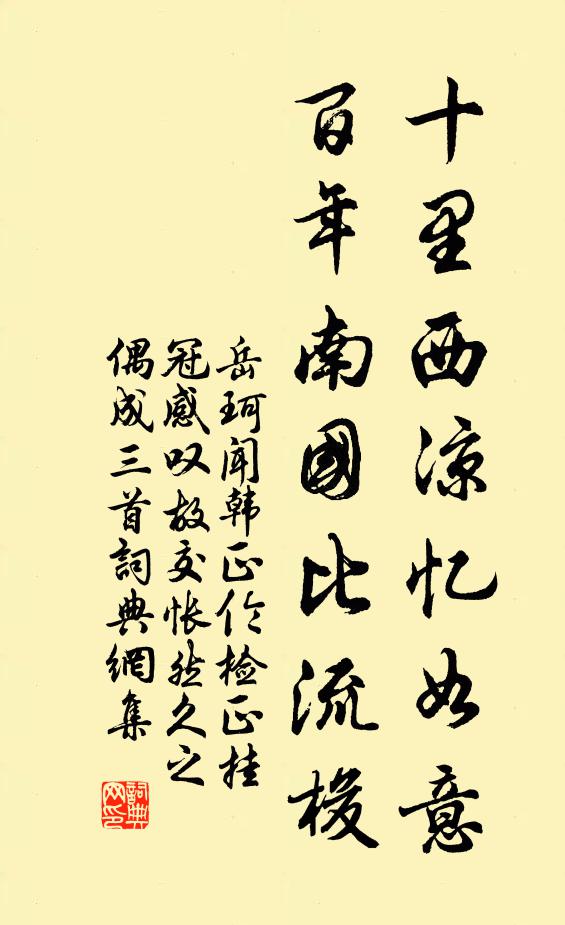 十里西凉忆如意
百年南國比流梭
岳珂闻韩正伦检正挂
冠感叹故交怅然久之
偶成三首詞典網集
詞典网印